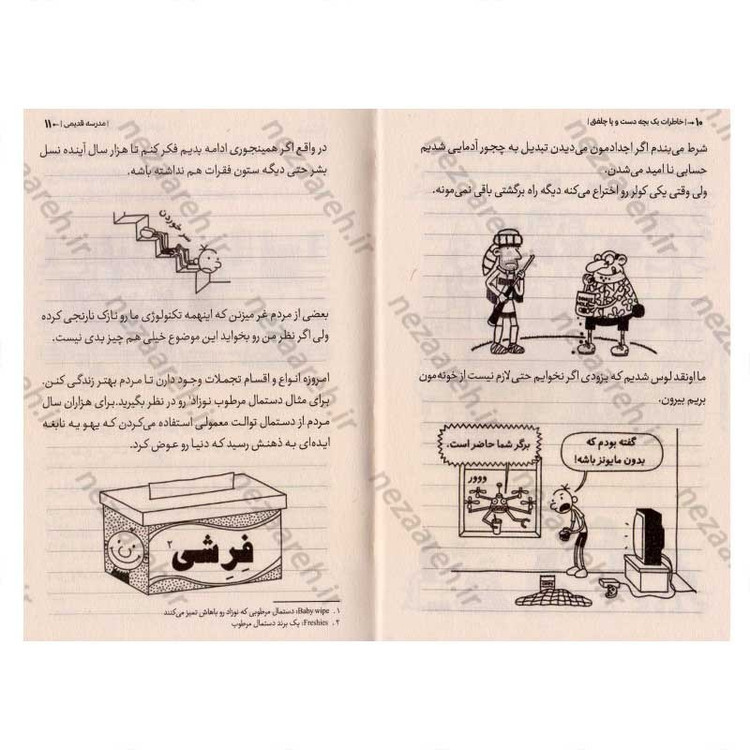 ۱۰ → | خاطرات یک بچه دست و پا چلفتی |
شرط می‌بندم اگر اجدادمون می‌دیدن تبدیل به چجور آدمایی شدیم
حسابی نا امید می‌شدن.
ولی وقتی یکی کولر رو اختراع می‌کنه دیگه راه برگشتی باقی نمی‌مونه.
ما اونقد لوس شدیم که بزودی اگر نخوایم حتی لازم نیست از خونه‌مون
بریم بیرون.
گفته بودم که
بدون مایونز باشه!
برگر شما حاضر است.
ووور
| مدرسه قدیمی | ← ۱۱
در واقع اگر همینجوری ادامه بدیم فکر کنم تا هزار سال آینده نسل
بشر حتی دیگه ستون فقرات هم نداشته باشه.
سر خوردن
بعضی از مردم غر میزنن که اینهمه تکنولوژی ما رو نازک نارنجی کرده
ولی اگر نظر من رو بخواید این موضوع خیلی هم چیز بدی نیست.
امروزه انواع و اقسام تجملات وجود دارن تا مردم بهتر زندگی کنن.
برای مثال دستمال مرطوب نوزاد۱ رو در نظر بگیرید. برای هزاران سال
مردم از دستمال توالت معمولی استفاده می‌کردن که یهو یه نابغه
ایده‌ای به ذهنش رسید که دنیا رو عوض کرد.
فِرِشی ۲
۱. Baby wipe: دستمال مرطوبی که نوزاد رو باهاش تمیز می‌کنند
۲. Freshies: یک برند دستمال مرطوب
nezaareh.ir